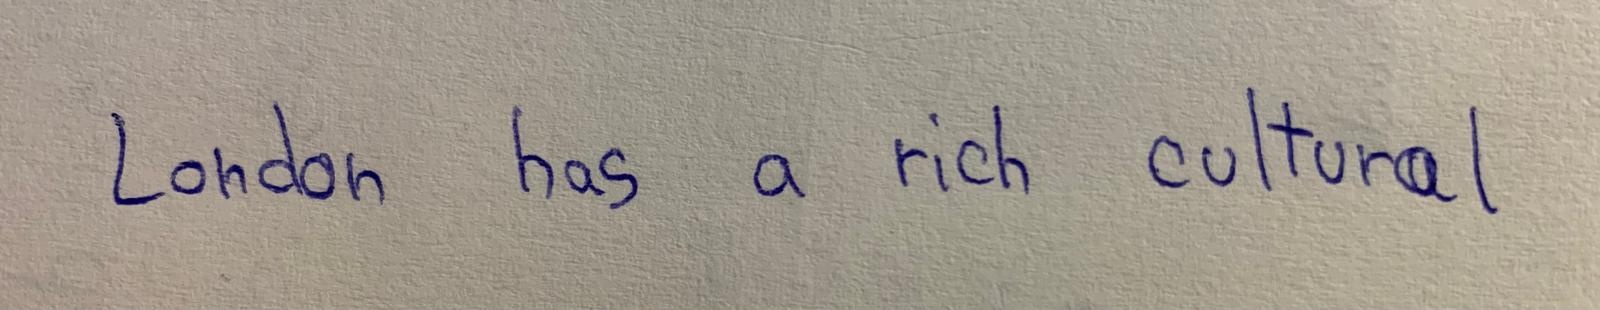 London has a rich cultural